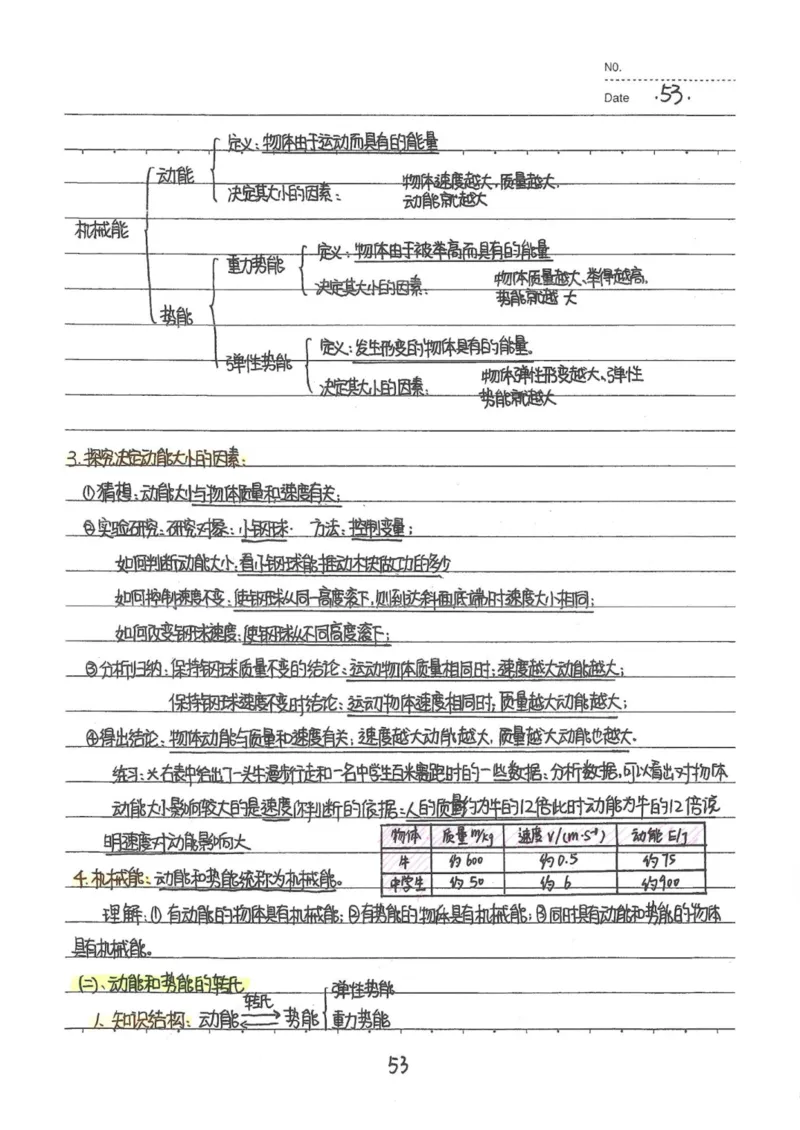 NO.
Date .53.
定义:物体由于运动而具有的能量
动能
决定其大小的因素:
物体速度越大,质量越大,
动能就越大
机械能
定义:物体由于被举高而具有的能量
重力势能
决定其大小的因素:
物体质量越大、举得越高,
势能就越大
势能
定义:发生形变的物体具有的能量。
弹性势能
决定其大小的因素:
物体弹性形变越大、弹性
势能就越大
3.探究决定动能大小的因素:
①猜想:动能大小与物体质量和速度有关;
②实验研究:研究对象:小钢球. 方法:控制变量;
如何判断动能大小:看小钢球能推动木块做功的多少
如何控制速度不变:使钢球从同一高度滚下,则到达斜面底端时速度大小相同;
如何改变钢球速度:使钢球从不同高度滚下;
③分析归纳:保持钢球质量不变的结论:运动物体质量相同时;速度越大动能越大;
保持钢球速度不变时结论:运动物体速度相同时;质量越大动能越大;
④得出结论:物体动能与质量和速度有关;速度越大动能越大,质量越大动能也越大.
练习:※右表中给出了一头牛漫步行走和一名中学生百米赛跑时的一些数据:分析数据,可以看出对物体
动能大小影响较大的是速度你判断的依据:人的质量约为牛的1/12倍此时动能为牛的12倍说
明速度对动能影响大
物体 质量m/kg 速度v/(m·s⁻¹) 动能E/J
牛 约600 约0.5 约75
中学生 约50 约6 约900
4.机械能:动能和势能统称为机械能。
理解:①有动能的物体具有机械能;②有势能的物体具有机械能;③同时具有动能和势能的物体
具有机械能。
(二)、动能和势能的转化
弹性势能
转化
1、知识结构:动能 势能 重力势能
53